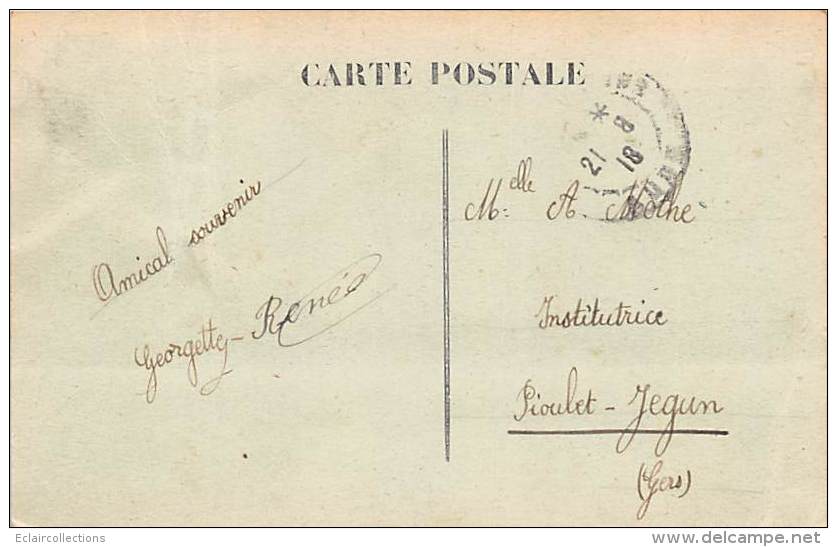 CARTE POSTALE
21 8
18
Amical souvenir
Georgette - Renée
Melle A. Mothe
Institutrice
Pioulet - Jegun
(Gers)
Eclaircollections
delcampe.net